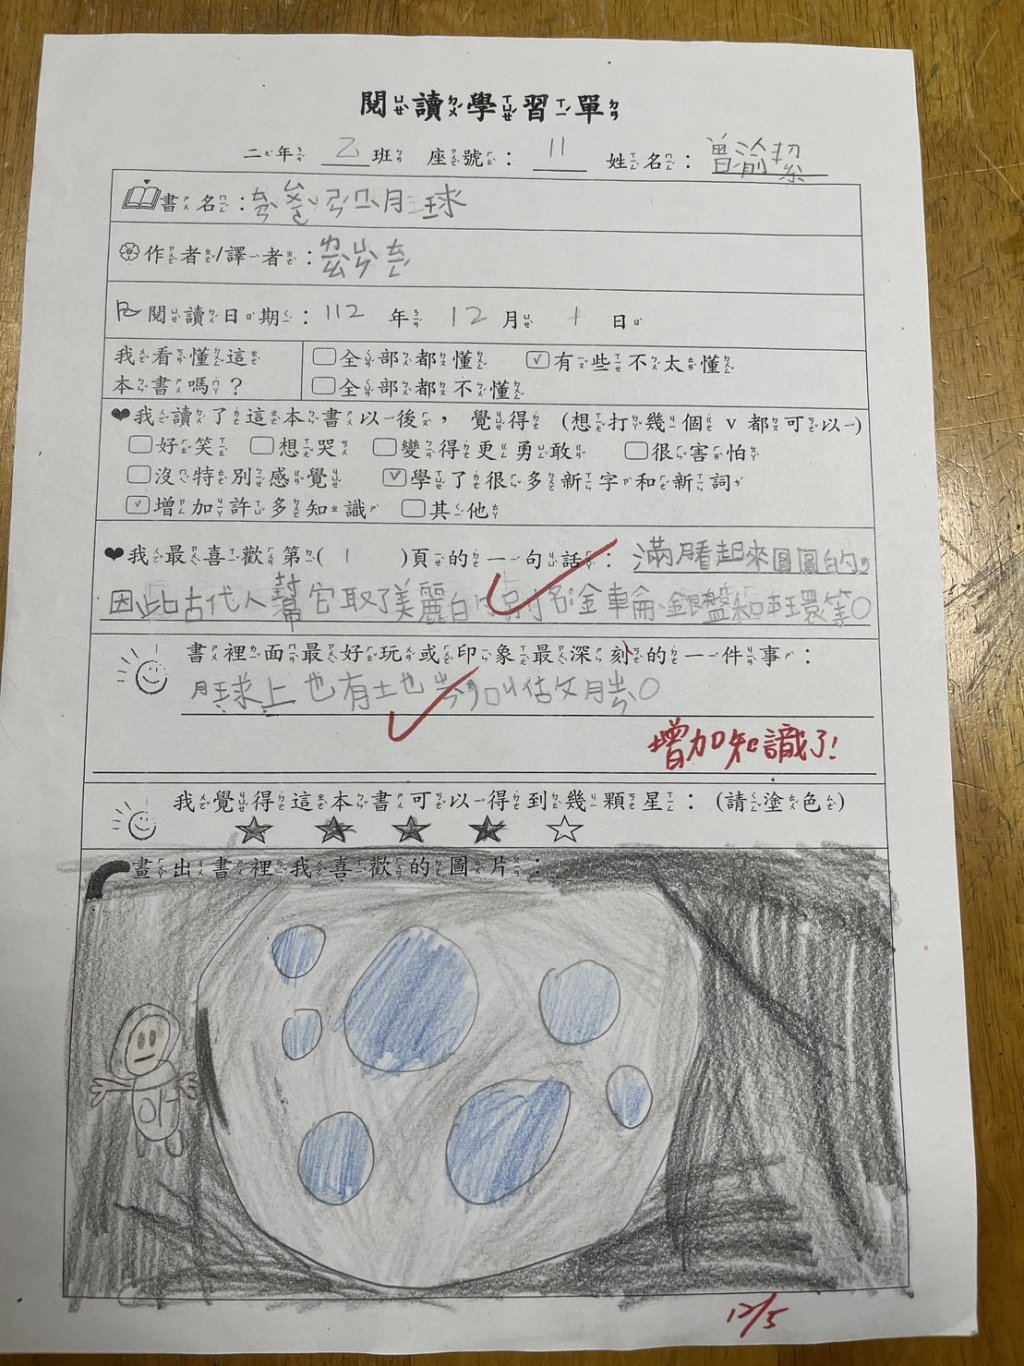 閱讀學習單
二年 乙 班 座號： 11 姓名：曾渝絜
書名：ㄊㄢˋ ㄙㄨㄛˇ ㄕㄣˊ ㄇㄧˋ 月球
作者/譯者：
閱讀日期：112 年 12 月 1 日
我看懂這本書嗎？
全部都懂 ✓有些不太懂
全部都不懂
❤我讀了這本書以後，覺得 (想打幾個 v 都可以)
好笑 想哭 變得更勇敢 很害怕
沒特別感覺 ✓學了很多新字和新詞
✓增加許多知識 其他
❤我最喜歡第( 1 )頁的一句話：滿月看起來圓圓的，
因此古代人幫它取了美麗的別名金輪、銀盤和玉環等。
書裡面最好玩或印象最深刻的一件事：
月球上也有土也
增加知識了!
我覺得這本書可以得到幾顆星：(請塗色)
★ ★ ★ ★ ☆
畫出書裡我喜歡的圖片：
12/5